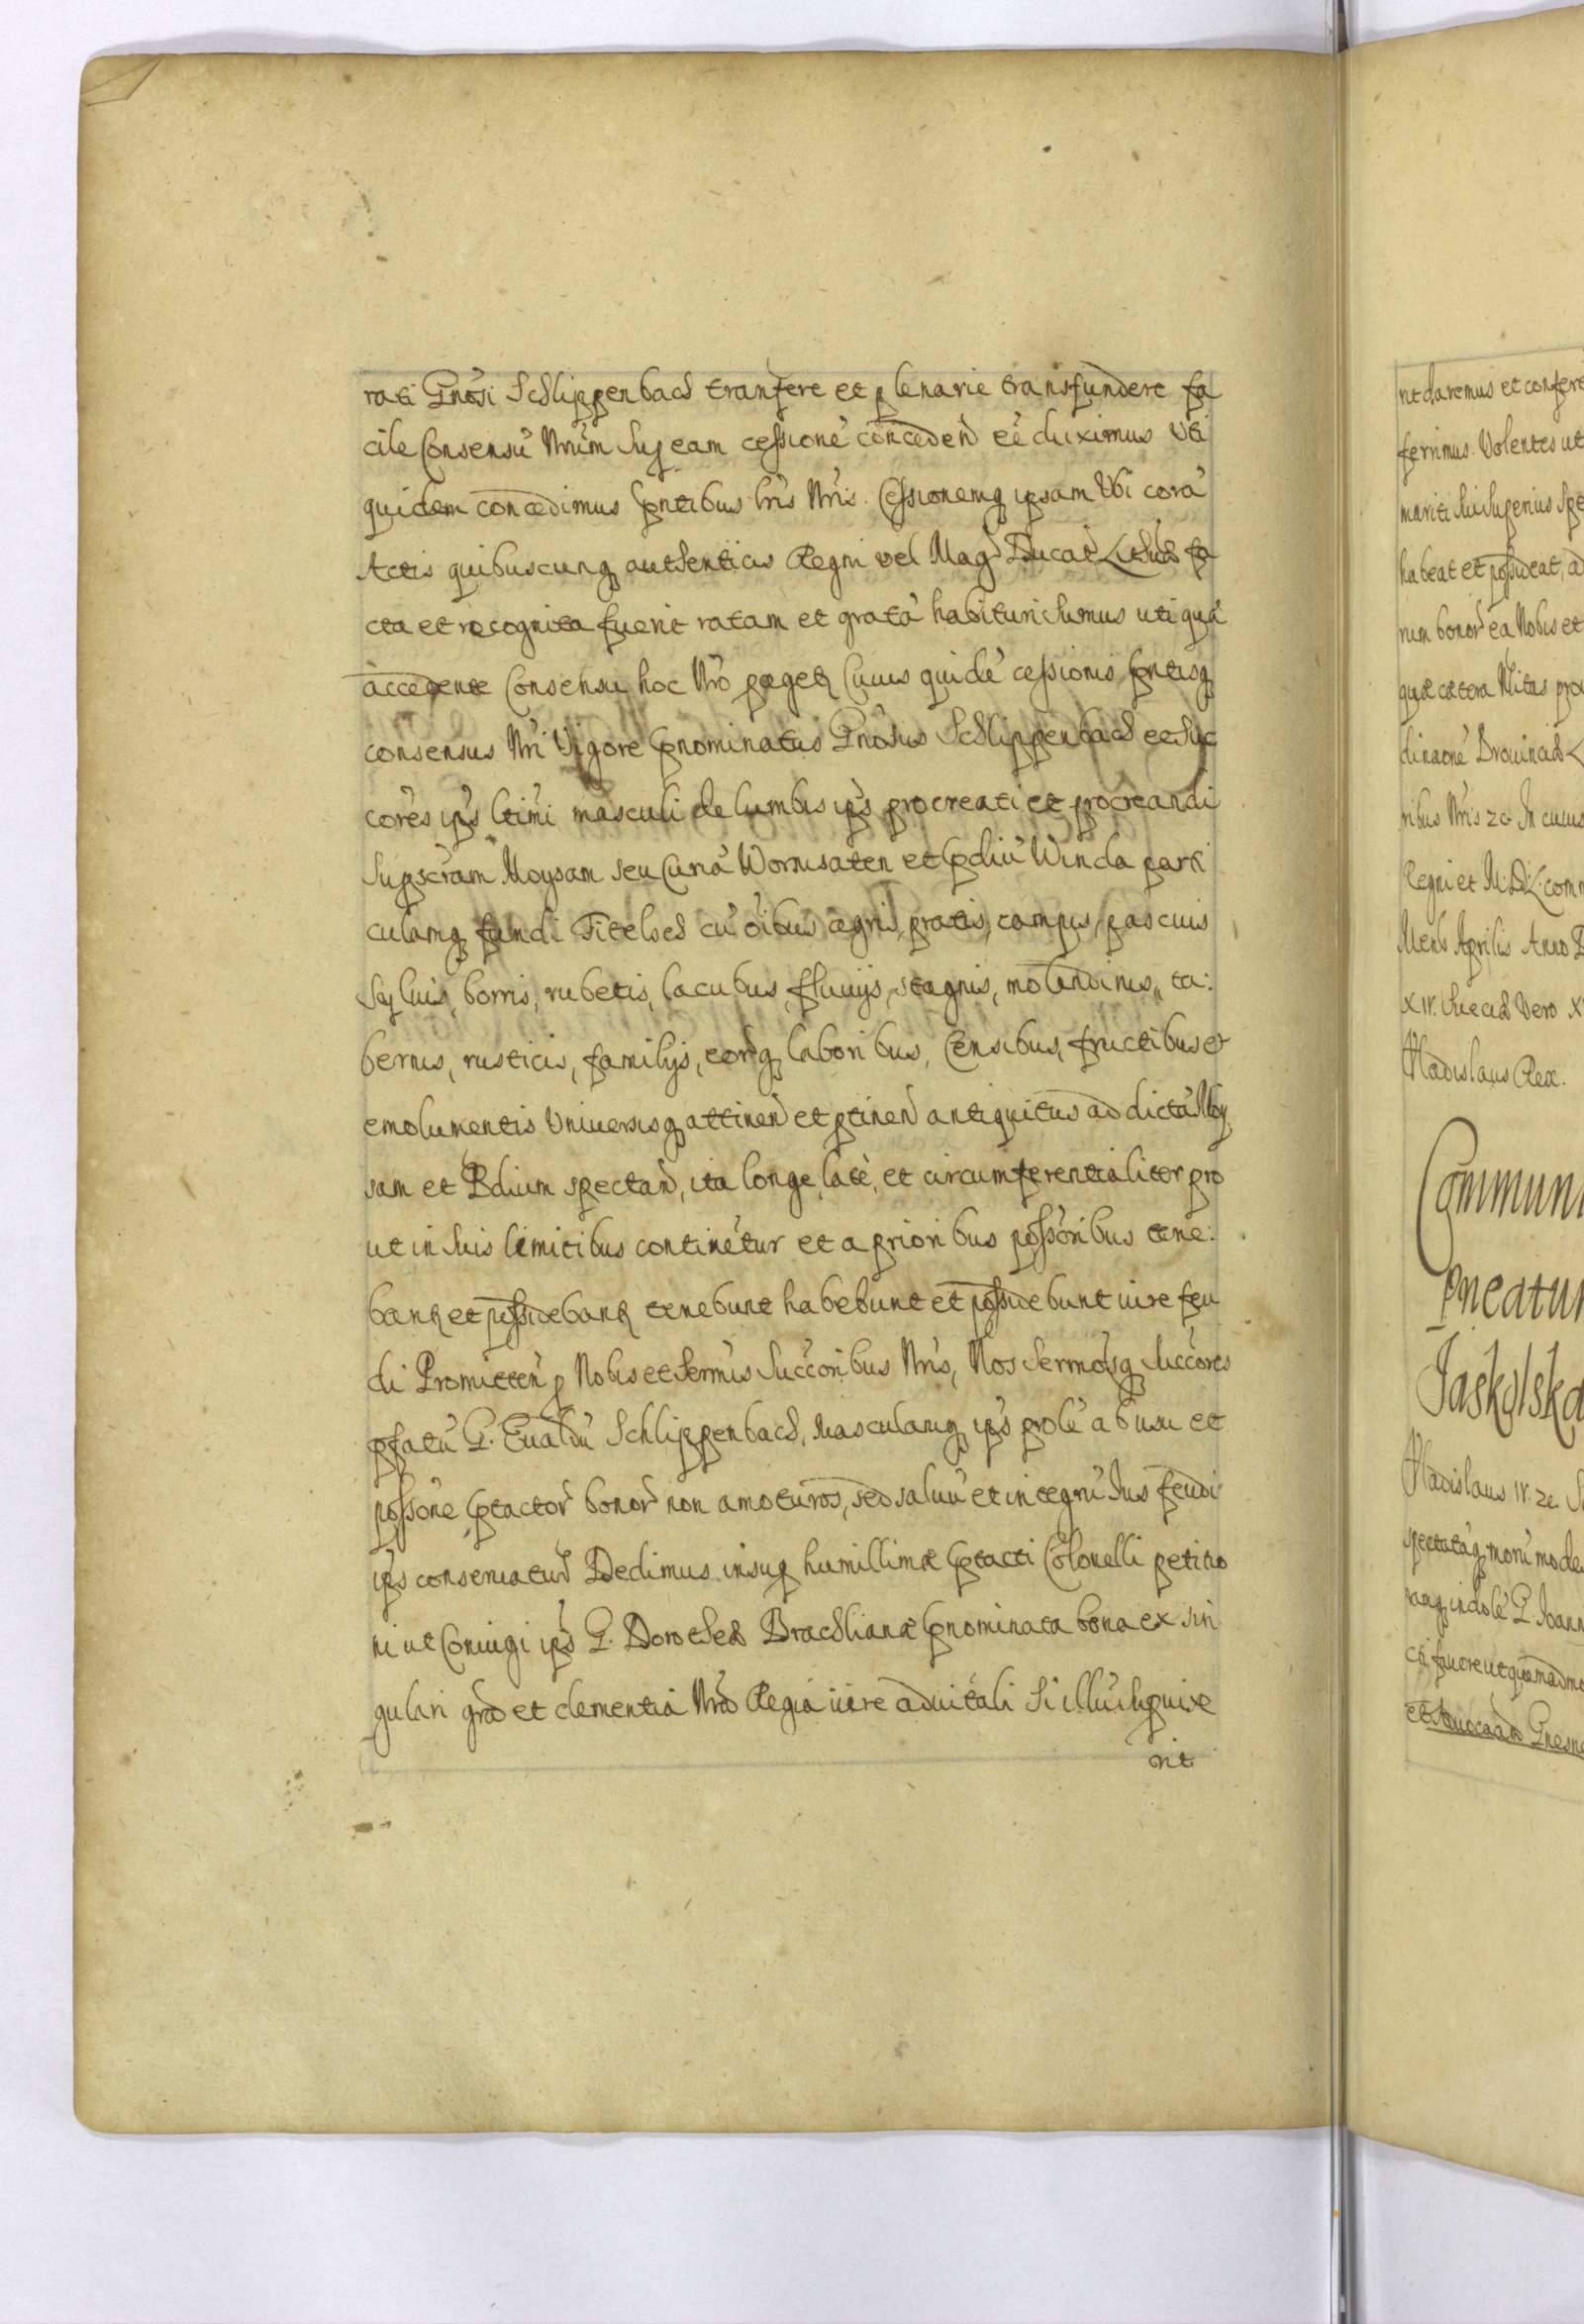 rati Gnosi Schlippenbach tranfere et plenarie transfundere fa
cile Consensu Nrum Sup eam cessione conceden ee duximus Uti
quidem concedimus pntibus lris Nris. Cessionemq ipsam Ubi cora
Actis quibuscunq authenticis Regni vel Mag Ducat Lithuae fa
cta et recognita fuerit ratam et grata habituri sumus uti qua
accedente Consensu hoc Nro Cuius quide cessionis pntisq
consensus Nri Vigore pnominatus Gnosus Schlippenbach et Suc
cores ips ltimi masculi de lumbis ips procreati et procreandi
Supscram Moysam seu Curia Wormsaten et pdiu Winda parti
culamq fundi Titelsed cu oibus agris, pratis, campis, pascuis
Syluis, borris, rubetis, lacubus, fluuijs, stagnis, molendinis, ta:
bernis, rusticis, familijs, eorq laboribus, Censibus, fructibus et
emolumentis Universisq attinen et ptinen antiquitus ad dicta Moy
sam et Pdium spectan, ita longe, late, et circumferentialiter pro
ut in suis limitibus continetur et a prioribus possoribus tene:
bant et possidebant tenebunt habebunt et possidebunt iure feu
di Promitten p Nobis et Sermis Succoribus Nris, Nos Sermosq Succores
pfatu G. Eualdu Schlippenbach, Masculamq ips prole ab usu et
possone ptactor bonor non amoturos, sed saluu et integru Ius feudi
ips conseruatur Dedimus insup humillimae ptacti Colonelli petitio
ni ut Coniugi ips G. Dorotheae Brachlianae pnominata bona ex sin
gulari gra et clementia Nra Regia iure aduitali Si illu supuixe
rit
rit daremus et confere
ferimus. Volentes ut
mariti sui superius spe
habeat et possideat, a
rum bonor ea Nobis et
quae caetera
dinaone Prouinciae L
ribus Nris zc. In cuius
Regni et M.D.L. comm
Mens Aprilis Anno D
XIV. Sueciae Vero X
Vladislaus Rex.
Communi
pneatur
Jaskolska
Vladislaus IV. zc. S
spectataq moru mode
ranq indole G Joann
ci fauore ut quemadmo
et Gnesne